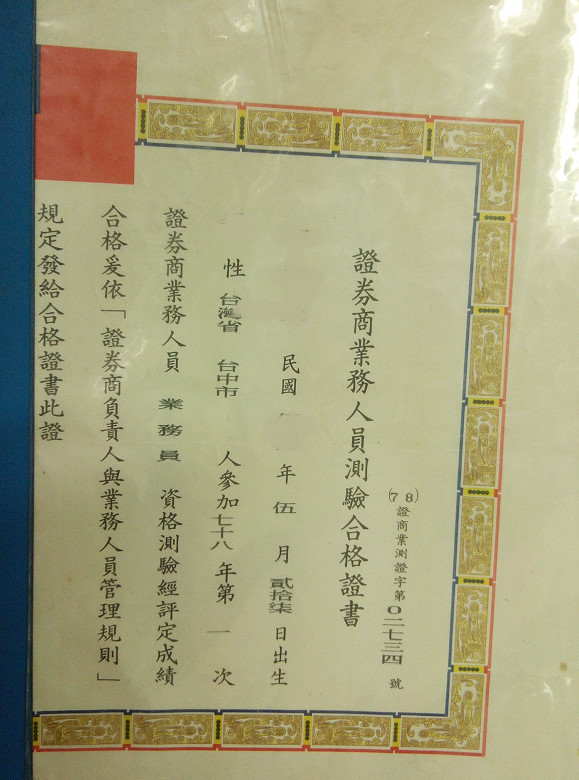 證券商業務人員測驗合格證書
(78)證商業測證字第０二七三四號
民國 年 伍 月 貳拾柒 日出生
性 台灣省 台中市 人參加七十八年第 一 次
證券商業務人員 業務員 資格測驗經評定成績
合格爰依「證券商負責人與業務人員管理規則」
規定發給合格證書此證